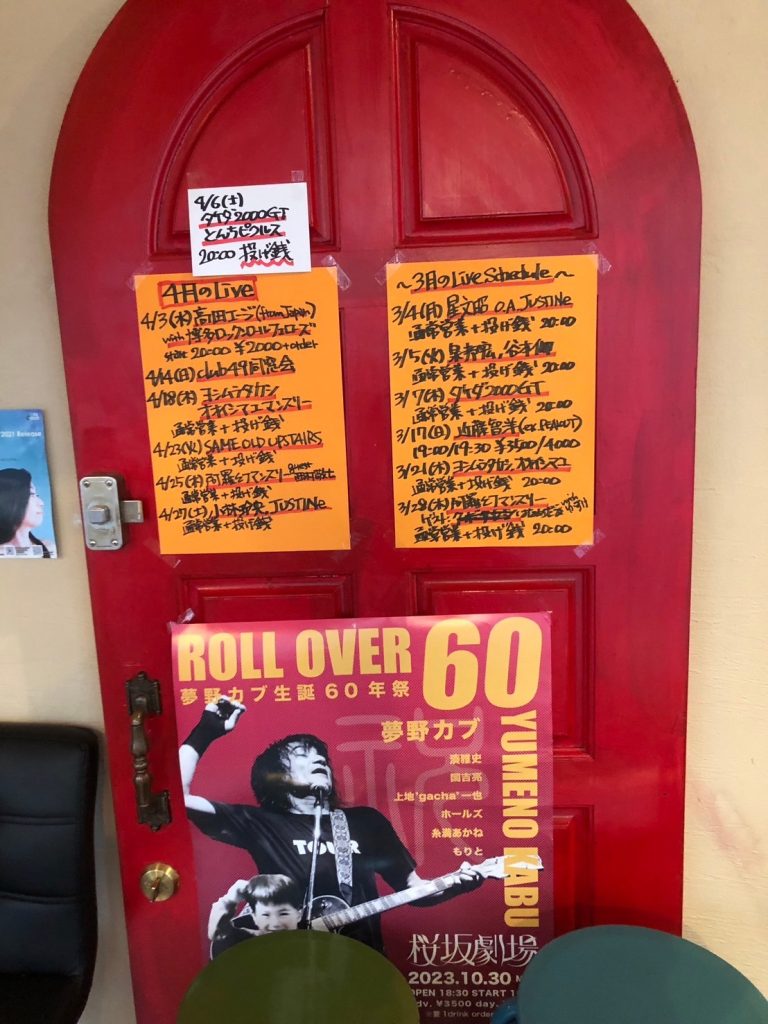 4/6(土)
タケダ2000GT
とんちピクルス
20:00 投げ銭
4月のLive
4/3(水) 高田エージ(from Japan)
with 博多ロックンロールフェローズ
start 20:00 ¥2000+order
4/14(日) club49同窓会
4/18(木) ヨシムラタカシ
オオイシマユマンズリー
通常営業+投げ銭
4/23(火) SAME OLD UPSTAIRS
通常営業+投げ銭
4/25(木) 阿羅幻マンズリー
通常営業+投げ銭
4/27(土) 小林 JUSTINe
通常営業+投げ銭
~3月のLive Schedule~
3/4(月) 星文昭 O.A. JUSTINe
通常営業+投げ銭 20:00
3/5(火) 泉
通常営業+投げ銭 20:00
3/7(木) タケダ2000GT
通常営業+投げ銭 20:00
3/17(日) 近藤智洋(ex.PEALOUT)
19:00/19:30 ¥3500/4000
3/21(木) ヨシムラタカシ
通常営業+投げ銭 20:00
3/28(木) 阿羅幻マンズリー
ゲスト:
通常営業+投げ銭 20:00
2021 Release
ROLL OVER 60
夢野カブ生誕60年祭
YUMENO KABU
夢野カブ
湊雅史
國吉亮
上地'gacha'一也
ホールズ
糸満あかね
もりと
TOUR
桜坂劇場
2023.10.30
OPEN 18:30 START 1
adv. ¥3500 day.
※要1drink order